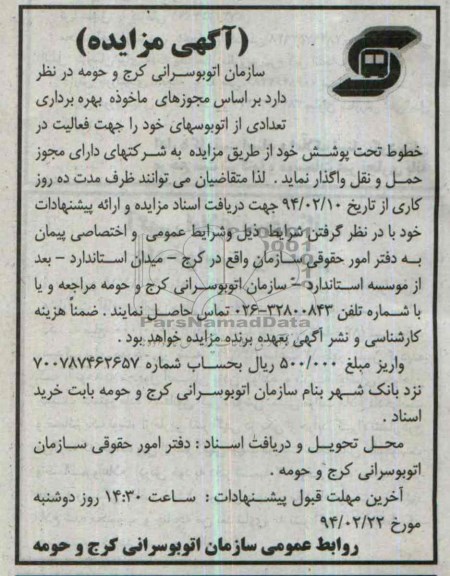 (آگهی مزایده)
سازمان اتوبوسرانی کرج و حومه در نظر
دارد بر اساس مجوزهای ماخوذه بهره برداری
تعدادی از اتوبوسهای خود را جهت فعالیت در
خطوط تحت پوشش خود از طریق مزایده به شرکتهای دارای مجوز
حمل و نقل واگذار نماید . لذا متقاضیان می توانند ظرف مدت ده روز
کاری از تاریخ ۹۴/۰۲/۱۰ جهت دریافت اسناد مزایده و ارائه پیشنهادات
خود با در نظر گرفتن شرایط ذیل وشرایط عمومی و اختصاصی پیمان
به دفتر امور حقوقی سازمان واقع در کرج – میدان استاندارد – بعد
از موسسه استاندارد – سازمان اتوبوسرانی کرج و حومه مراجعه و یا
با شماره تلفن ۳۲۸۰۰۸۴۳-۰۲۶ تماس حاصل نمایند . ضمناً هزینه
ParsNamadData
کارشناسی و نشر آگهی بعهده برنده مزایده خواهد بود .
واریز مبلغ ۵۰۰/۰۰۰ ریال بحساب شماره ۷۰۰۷۸۷۴۶۲۶۵۷
نزد بانک شهر بنام سازمان اتوبوسرانی کرج و حومه بابت خرید
اسناد .
محل تحویل و دریافت اسناد : دفتر امور حقوقی سازمان
اتوبوسرانی کرج و حومه .
آخرین مهلت قبول پیشنهادات : ساعت ۱۴:۳۰ روز دوشنبه
مورخ ۹۴/۰۲/۲۲
روابط عمومی سازمان اتوبوسرانی کرج و حومه